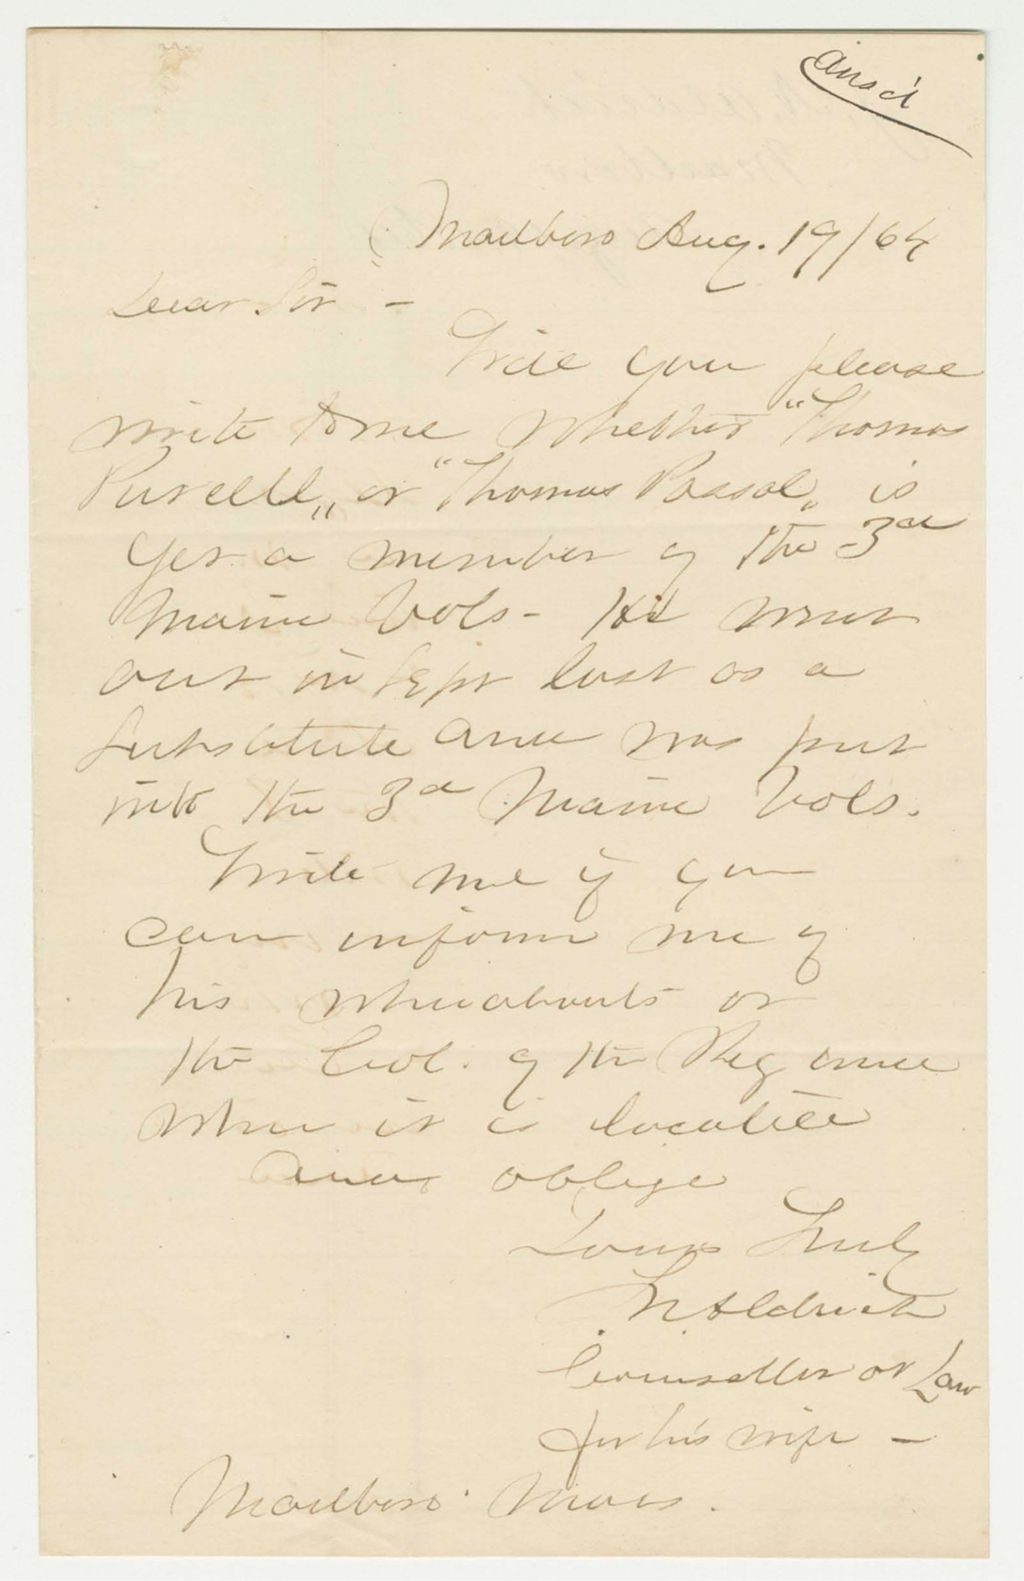 Ans'd
Marlboro Aug. 19/64
Dear Sir -
Will you please
write to me whether "Thomas
Purcell„ or "Thomas Passal„ is
yet a member of the 3rd
Maine Vols - He went
out in Sept last as a
Substitute and was put
into the 3d Maine Vols.
Write me if you
can inform me of
his whereabouts or
the Col. of the Reg and
where it is located
and oblige
Yours Truly
N Aldrich
Counsellor at Law
for his wife -
Marlboro Mass.